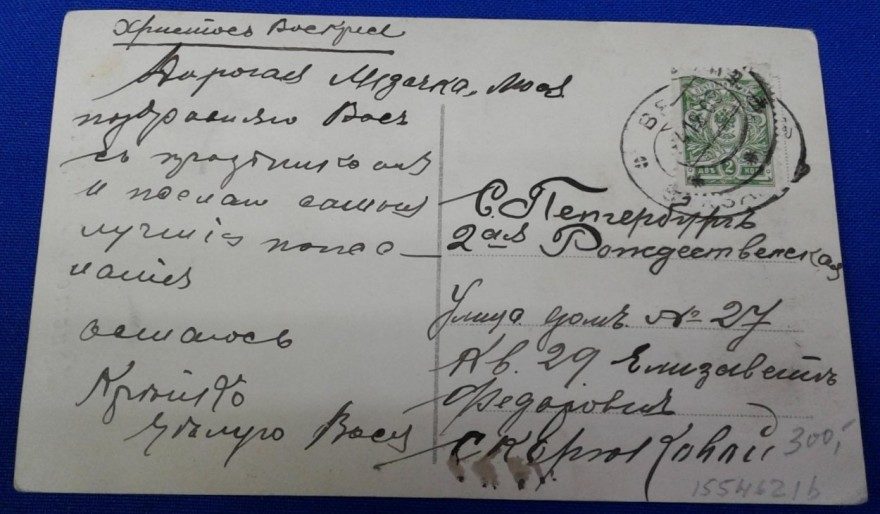 Христосъ Воскресе
Дорогая Лидочка, моя
поздравляю Васъ
съ праздникомъ
и послаю самыя
лучшія поже-
ланія
остаюсь
Крѣпко
цѣлую Васъ
С. Петербургъ
2ая Рождественская
Улица домъ № 27
Кв. 29 Елизаветѣ
Федоровнѣ
300,-
1554621b
ДВѢ 2 КОП